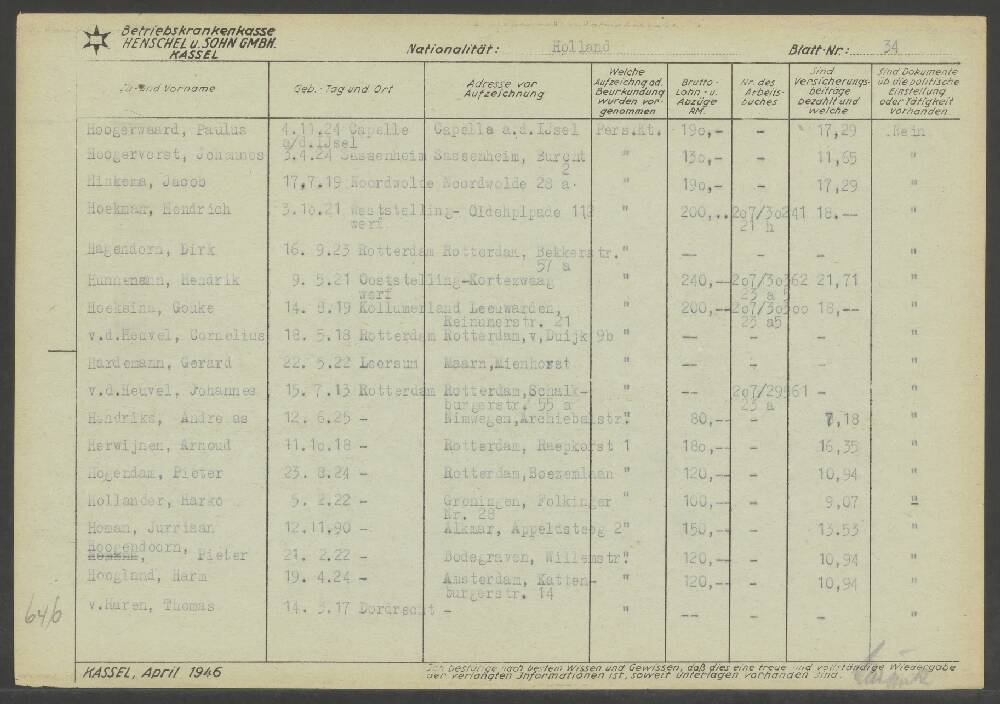 Betriebskrankenkasse
HENSCHEL u. SOHN GMBH.
KASSEL
Nationalität: Holland
Blatt-Nr: 34
Zu- und Vorname | Geb.- Tag und Ort | Adresse vor Aufzeichnung | Welche Aufzeichng od. Beurkundung wurden vorgenommen | Brutto-Lohn- u. Abzüge RM. | Nr. des Arbeitsbuches | Sind Versicherungsbeiträge bezahlt und welche | Sind Dokumente üb die politische Einstellung oder Tätigkeit vorhanden
Hoogerwaard, Paulus 4.11.24 Capelle Capelle a.d. IJsel Pers.Kt. 19o,- - 17,29 Nein
a/d.IJsel
Hoogervorst, Johannes 3.4.24 Sassenheim Sassenheim, Burcht " 13o,- - 11,65 "
2
Hinkema, Jacob 17.7.19 Noordwolde Noordwolde 28 a. " 19o,- - 17,29 "
Hoekman, Hendrich 3.1o.21 Weststelling- Oldehplpade 112 " 200,.. 2o7/3o241 18.-- "
werf 21 h
Hagendorn, Dirk 16. 9.23 Rotterdam Rotterdam, Bekkerstr. " -- - - "
57 a
Hunnemann, Hendrik 9. 5.21 Ooststelling-Kortezwaag " 240,-- 2o7/3o362 21,71 "
werf 23 a 5
Hoeksina, Gouke 14. 8.19 Kollumerland Leeuwarden, " 200,-- 2o7/3o3oo 18,-- "
Reinumerstr. 21 23 a5
v.d.Heuvel, Cornelius 18. 5.18 Rotterdam Rotterdam,v,Duijk 9b " -- - - "
Hardemann, Gerard 22. 5.22 Leersum Maarn,Mienhorst " -- - - "
v.d.Heuvel, Johannes 15. 7.13 Rotterdam Rotterdam,Schalk- " -- 2o7/29561 - "
burgerstr. 55 a 23 a
Hendriks, Andreas 12. 6.25 - Nimwegen,Archiebalstr." 80,-- - 7,18 "
Herwijnen, Arnoud 11.1o.18 - Rotterdam, Raepkorst 1 18o,-- - 16,35 "
Hogendam, Pieter 23. 8.24 - Rotterdam,Boezemlaan " 120,-- - 10,94 "
Hollander, Harko 5. 2.22 - Groningen, Folkinger " 100,-- - 9,07 "
Nr. 28
Homan, Jurriaan 12.11.90 - Alkmar, Appeldsteeg 2" 150,-- - 13.53 "
Hoogendoorn,
Pieter 21. 2.22 - Bodegraven, Willemstr." 120,-- - 10,94 "
Hoogland, Harm 19. 4.24 - Amsterdam, Katten- " 120,-- - 10,94 "
burgerstr. 14
v.Haren, Thomas 14. 3.17 Dordrecht - " -- - - "
64/6
KASSEL, April 1946
Ich bestätige nach bestem Wissen und Gewissen, daß dies eine treue und vollständige Wiedergabe
der verlangten Informationen ist, soweit Unterlagen vorhanden sind.